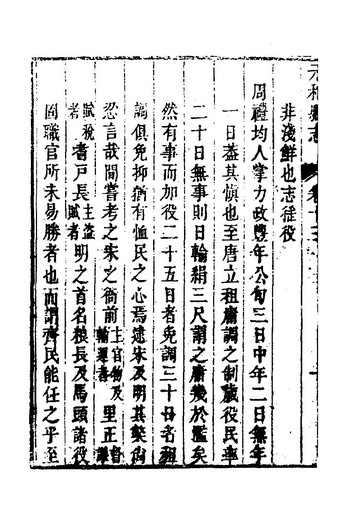 元和縣志 卷十六
非淺鮮也志徭役
周禮均人掌力政豐年公旬三日中年二日無年
一日蓋其慎也至唐立租庸調之制歲役民率
二十日無事則日輸絹三尺謂之庸幾於濫矣
然有事而加役二十五日者免調三十日者租
調俱免抑猶有恤民之心焉逮宋及明其弊尚
忍言哉間嘗考之宋之衙前主官物及輸運者里正督課
賦稅者耆戶長主盜賊者明之首名糧長及馬頭諸役
固職官所未易勝者也而謂齊民能任之乎至